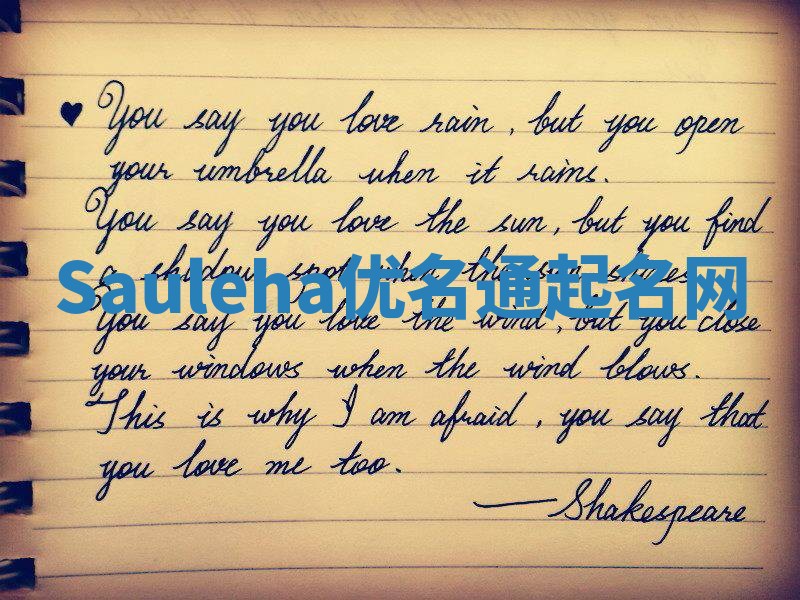 ♥ You say you love rain, but you open
your umbrella when it rains.
You say you love the sun, but you find
a shadow spot when the sun shines.
Sauleha优名通起名网
You say you love the wind, but you close
your windows when the wind blows.
This is why I am afraid, you say that
you love me too.
— Shakespeare